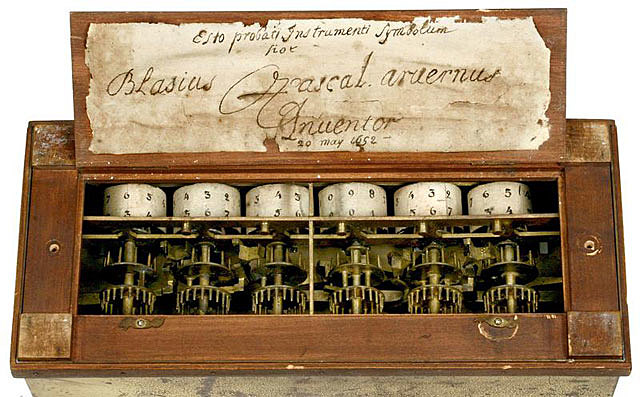 Esto probati Instrumenti Symbolum
hoc
Blasius Pascal. arvernus
Inventor
20 may 1652
4 3 2 0 9 8 4 3 2 7 6 5